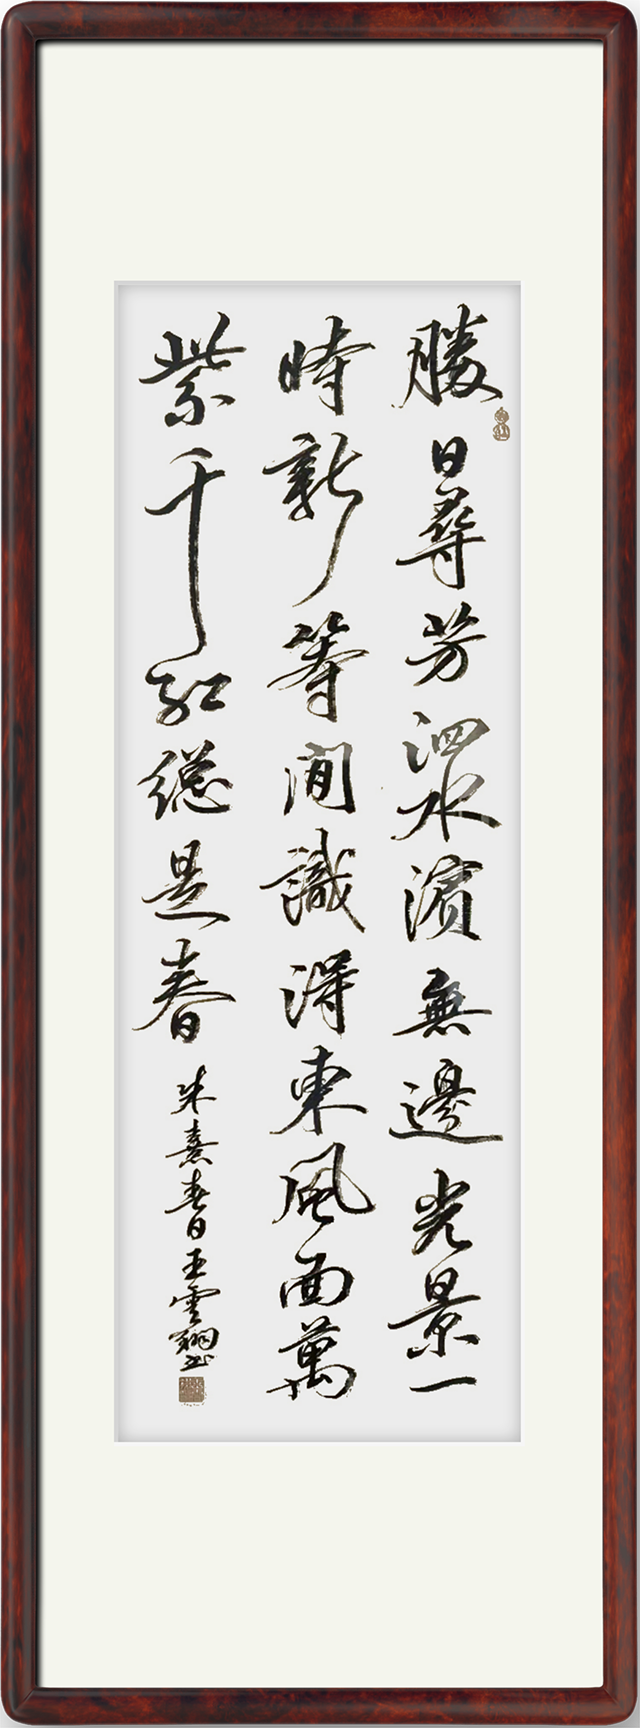 勝日尋芳泗水濱無邊光景一
時新等閒識得東風面萬
紫千紅總是春
朱熹春日王雲翔書